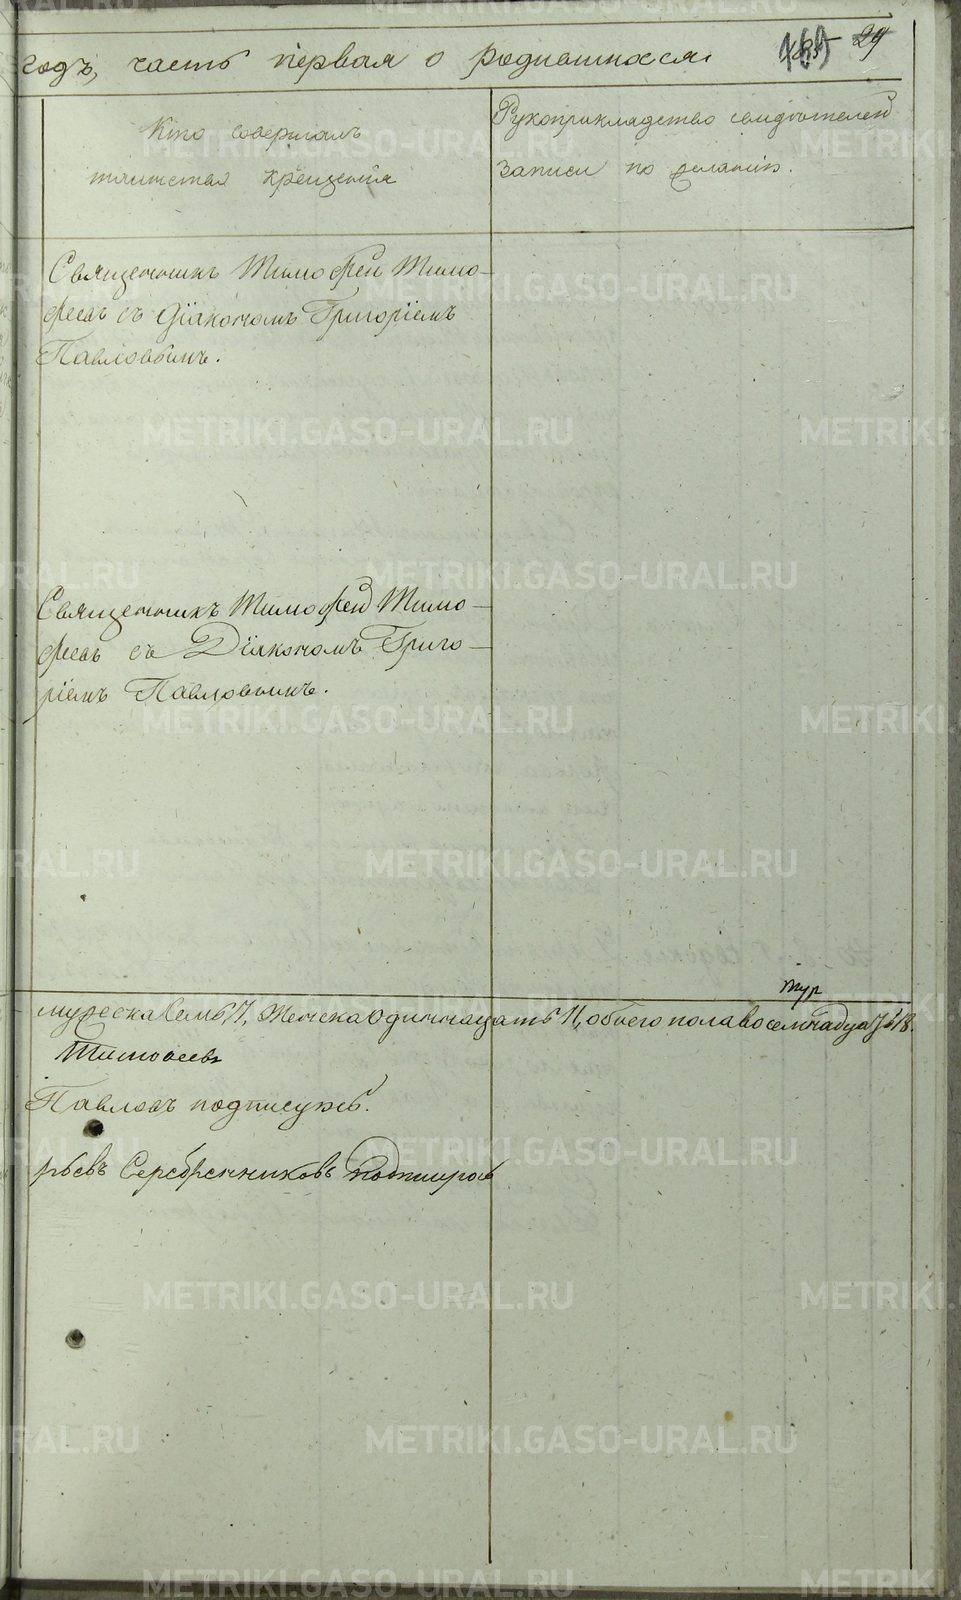 годъ, часть первая о родившихся. 29
Кто совершалъ
таинства крещенія
Рукоприкладство свидѣтелей
записи по желанію.
Священникъ Тимофей Тимо-
феевъ съ Діакономъ Григоріемъ
Павловымъ.
Священникъ Тимофей Тимо-
феевъ съ Діакономъ Григо-
ріемъ Павловымъ.
мужеска семь 7, женска одиннацать 11, обоего пола 18.
Тимоѳеевъ
Павловъ подписуюсь.
рьевъ Серебренниковъ
METRIKI.GASO-URAL.RU